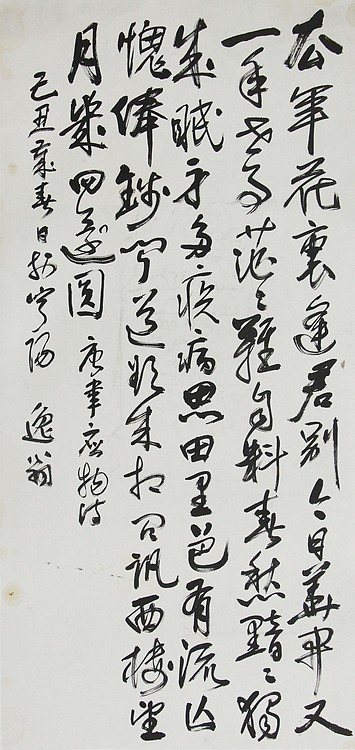 去年花裏逢君别今日花开又
一年世事茫々難自料春愁黯々獨
成眠身多疾病思田里邑有流亡
愧俸錢聞道欲来相问訊西楼望
月幾回還圆 唐韋應物诗
己丑歲春日於宁陽 逸翁